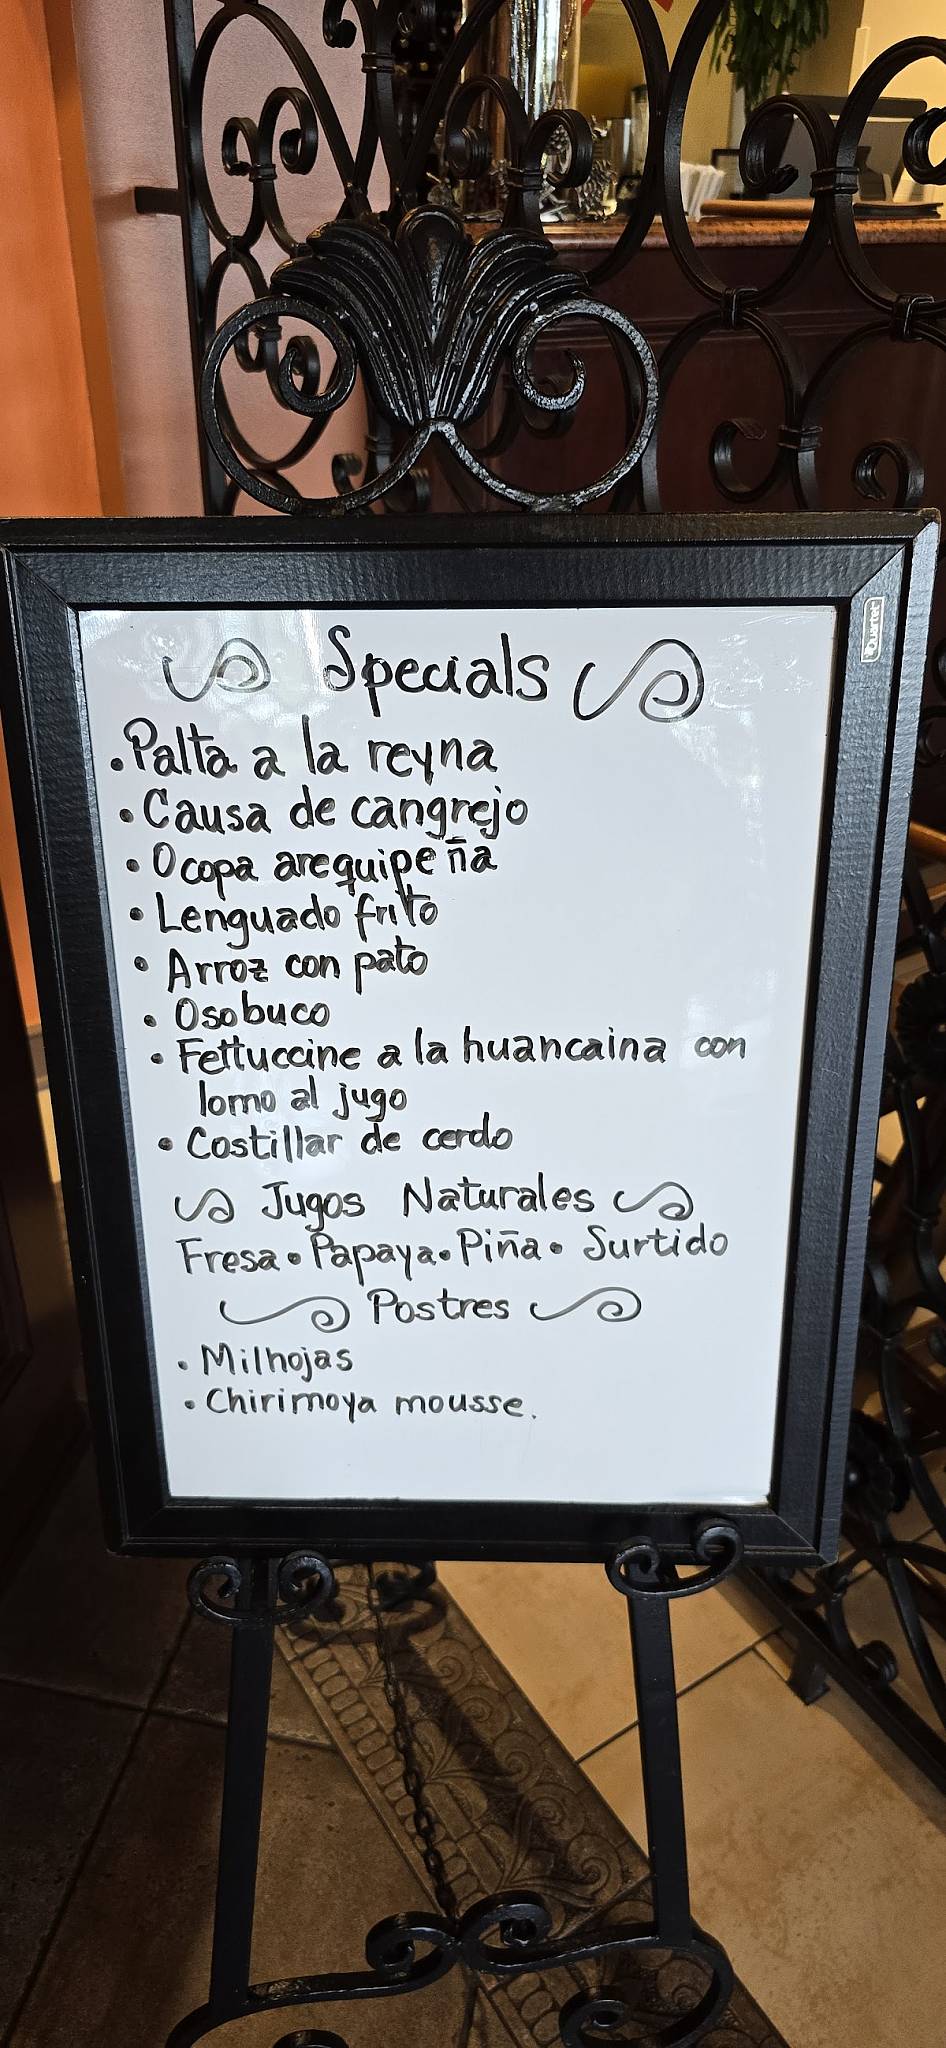 Quartet
Specials
•Palta a la reyna
• Causa de cangrejo
• Ocopa arequipeña
• Lenguado frito
• Arroz con pato
• Osobuco
• Fettuccine a la huancaina con
lomo al jugo
• Costillar de cerdo
Jugos Naturales
Fresa • Papaya • Piña • Surtido
Postres
• Milhojas
• Chirimoya mousse.